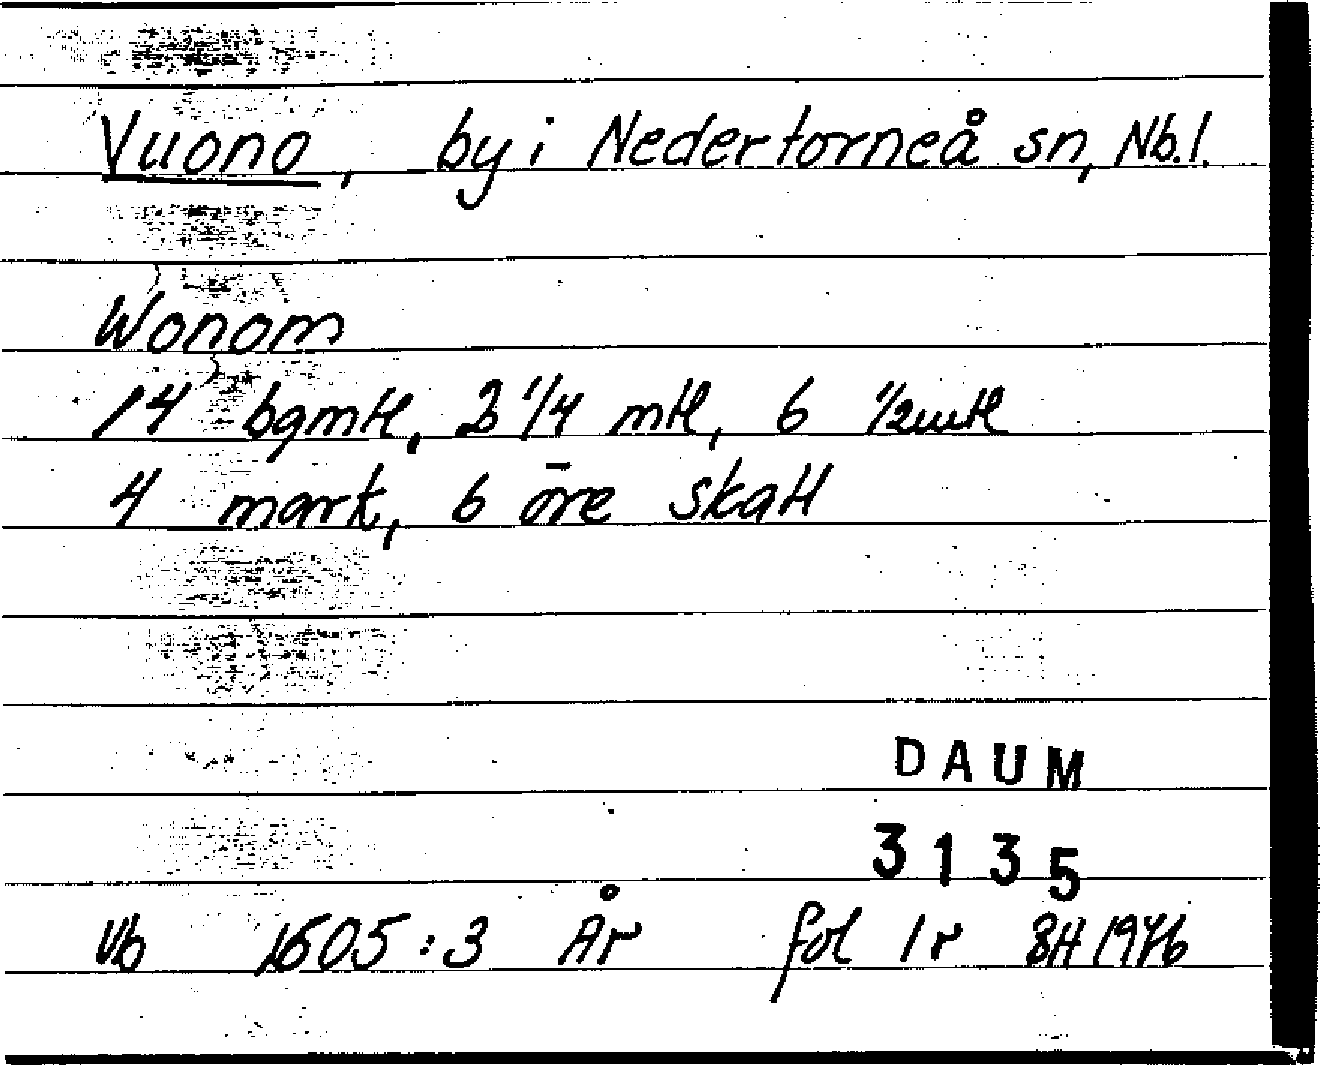 Vuono, by i Nedertorneå sn, Nb.l.
Wonom
14 bgmtl, 2 1/4 mtl, 6 1/2 mtl
4 mark, 6 öre skatt
DAUM
3135
Vb 1605:3 År fol 1r BH 1976